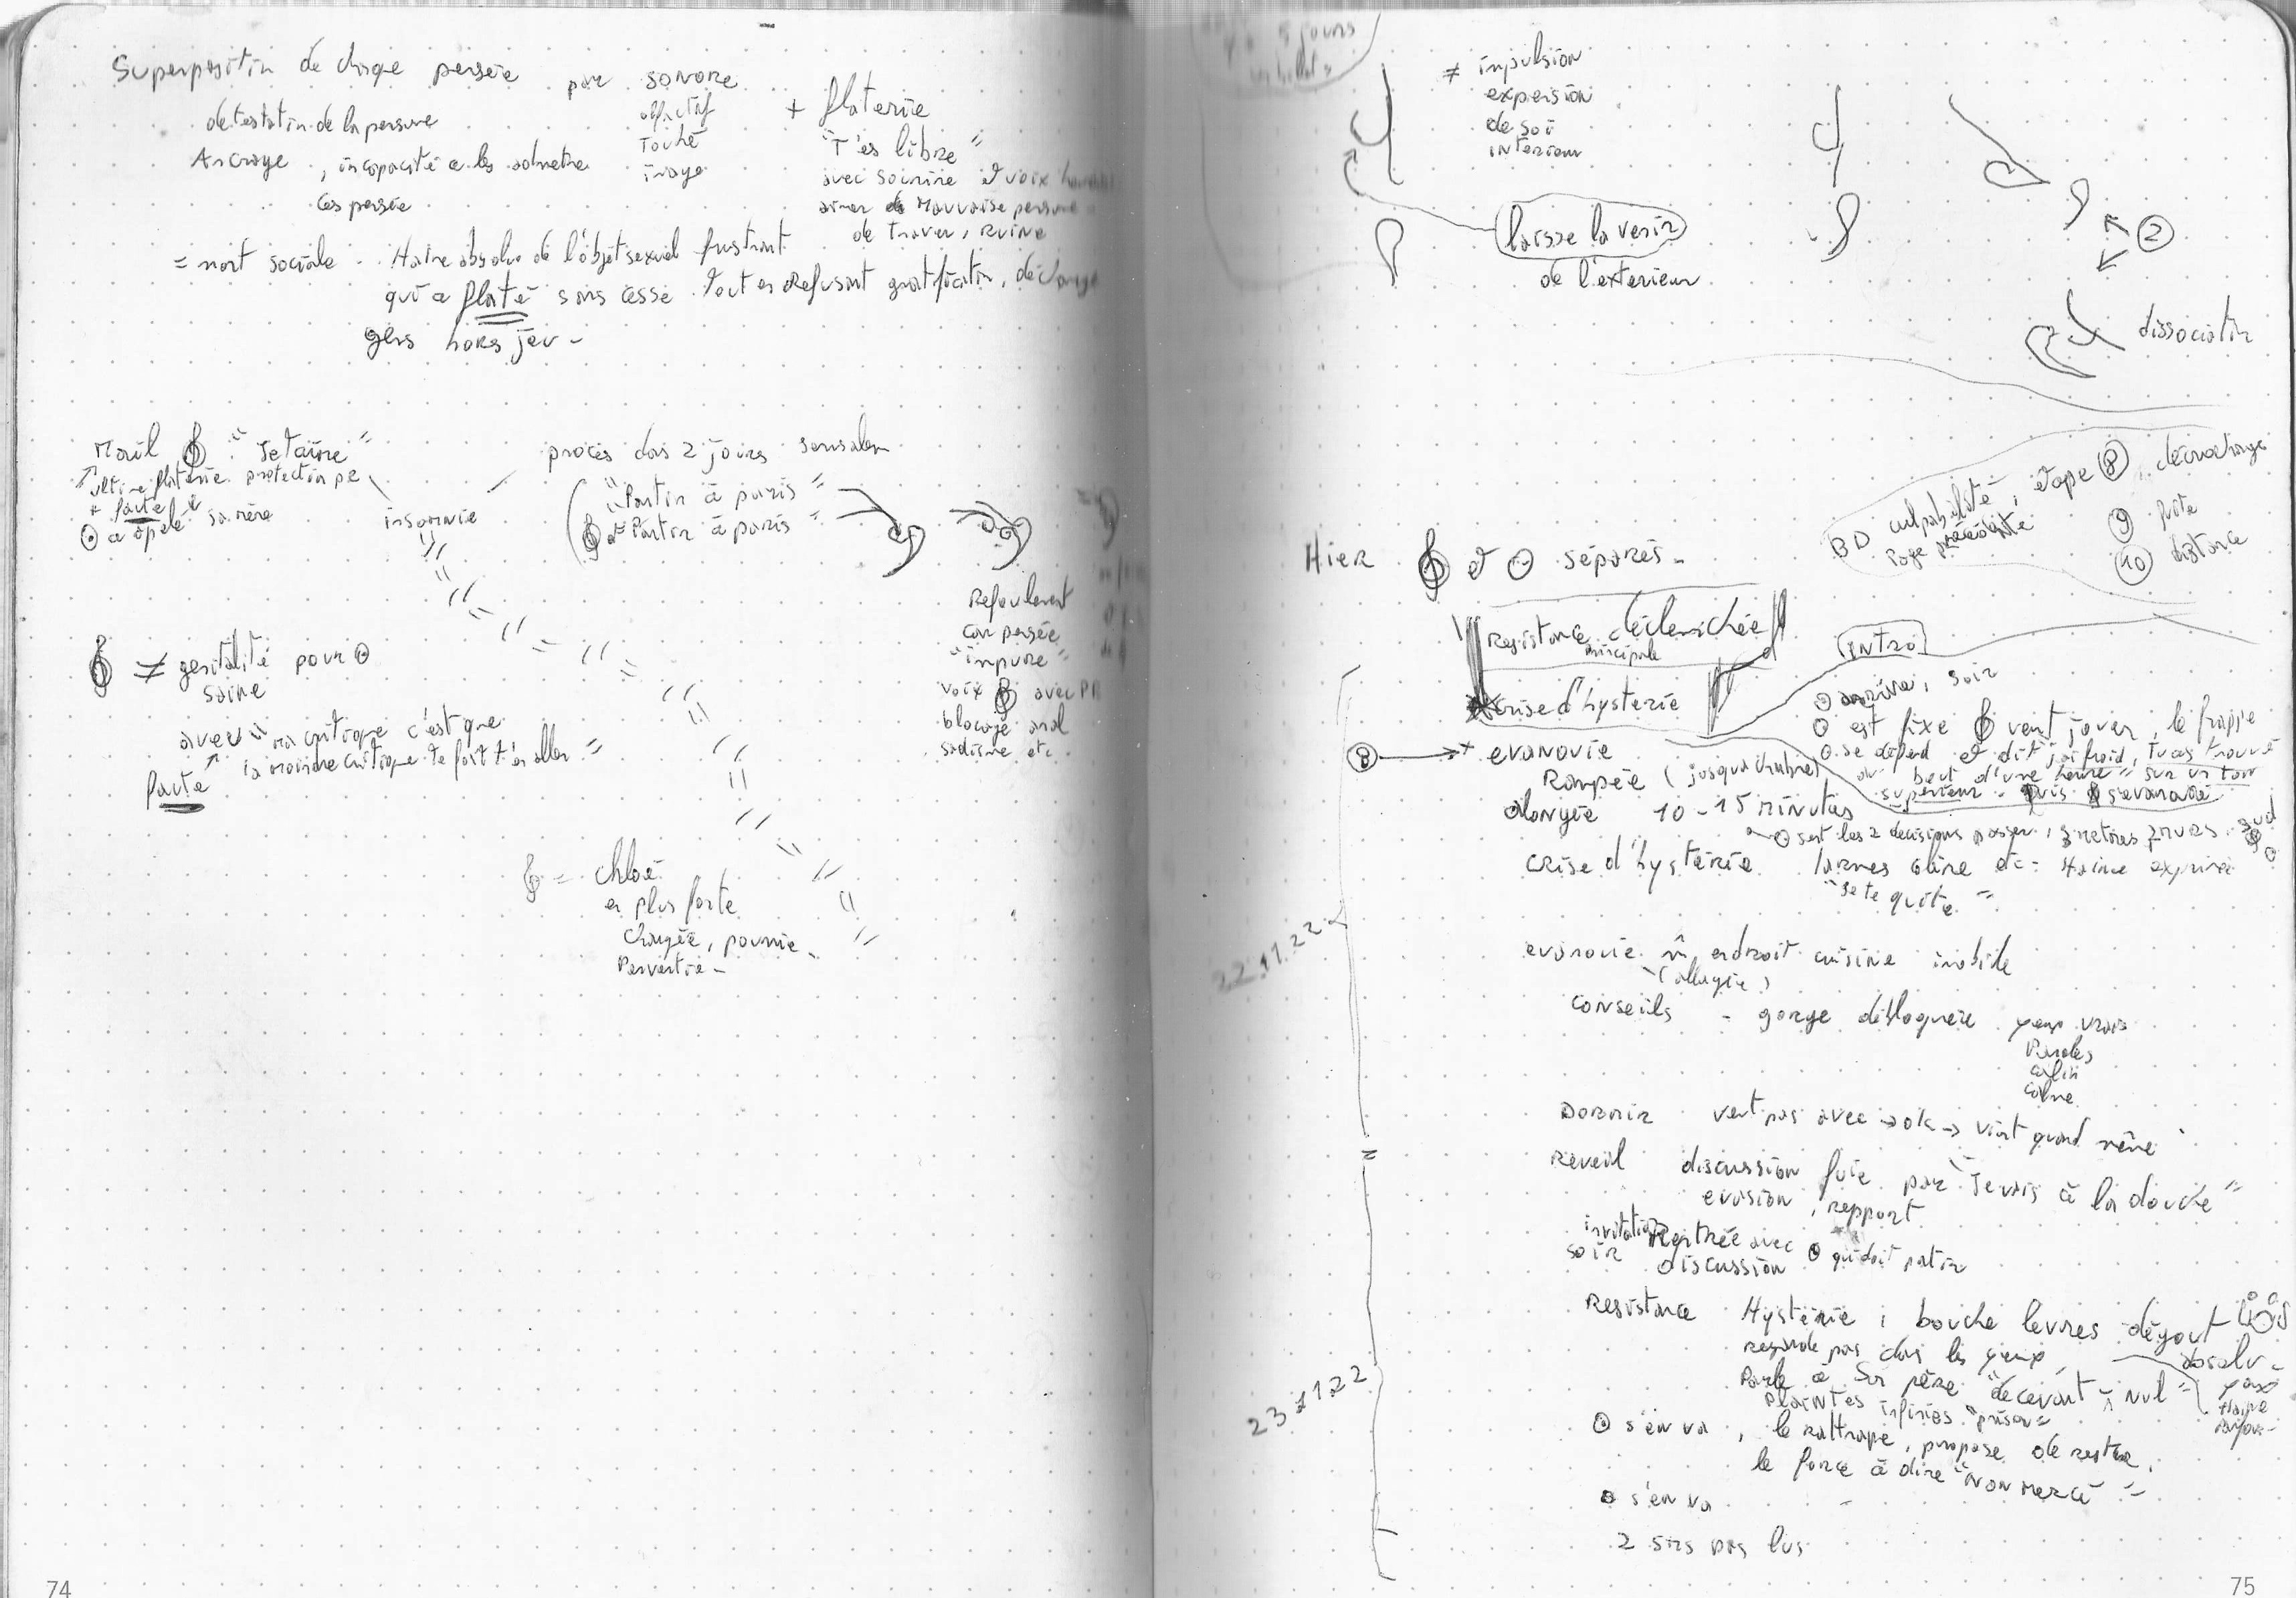 Superposition de chaque pensée par sonore
olfactif
Touché
image
+ flaterie
"T'es libre"
avec sourire et voix
aimer Mauvaise personne
de traver, ruine
detestation de la personne
Ancrage, incapacité a les admetre
ces pensée
= mort sociale - Haine absolue de l'objet sexuel frustrant
qui a flaté sans cesse tout en Refusant gratification, décharge
gens hors jeu -
"Je t'aime"
ultime flaterie protection
+ facte
a apelé sa mère
insomnie
procès dans 2 jours Jerusalem
"Partir à paris"
"Partir à paris"
Refoulement
car pensée
"impure"
voix avec
blocage anal
sadisme etc.
≠ genitalité pour
saine
avec "ma critique c'est que
la moindre critique te fait t'en aller"
facte
= chloé
en plus forte
Chargée, pourrie -
Pervertie -
5 jours
≠ impulsion
expension
de soi
interieur
laisse la venir
de l'exterieur
2
dissociation
BD culpabilité, étape 8
Page précédente
9 fuite
10 distance
Hier et séparés -
Resistance déclenchée
principale
crise d'hysterie
intro
arrive, soir
est fixe veut jouer, le frappe
se défend et dit "j'ai froid, tu as trouvé
au bout d'une heure" sur un ton
superieur - puis s'evanouie
8 → + evanouie
Rampée (jusqu'a chambre)
alongée 10-15 minutes
sent les 2 decisions passer,
crise d'hysterie larmes etc - Haine exprimée
"Je te quitte"
22.11.22
evanouie m̂ endroit cuisine imobile
(allongée)
conseils - gorge débloquere yeux vrais
Paroles
calin
calme
Dormir veut pas avec → ok → vient quand même
Reveil discussion fuie par "Je vais à la douche"
evasion, rapport
invitation Rentrée avec qui doit patir
soir discussion
23.11.22
Resistance Hystérie ; bouche levres dégout
absolu -
regarde pas dans les yeux
Parle à Son père "décevant, nul"
yeux
Haine
Plaintes infinies "prison"
s'en va, le rattrape, propose de rester,
le force à dire "Non merci"
s'en va
2 sms pas lus
74
75